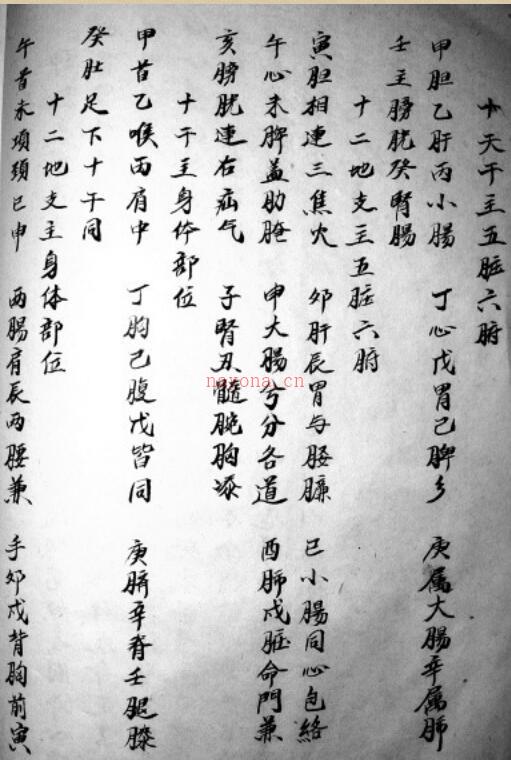 十天干主五脏六腑
甲胆乙肝丙小腸 丁心戊胃己脾乡 庚属大腸辛属肺
壬主膀胱癸腎腸
十二地支主五脏六腑
寅胆相連三焦火 卯肝辰胃与腰 巳小腸同心包絡
午心未脾益肋腌 申大腸兮分各道 酉肺戌脏命門兼
亥膀胱連右疝气 子腎丑髓腕胸
十干主身体部位
甲首乙喉丙肩中 丁胸己腹戊皆同 庚臍辛脊壬腿膝
癸肚足下十干同
十二地支主身体部位
午首未項頸巳申 两腸肩辰两腰兼 手卯戌背胸前寅
nayona.cn